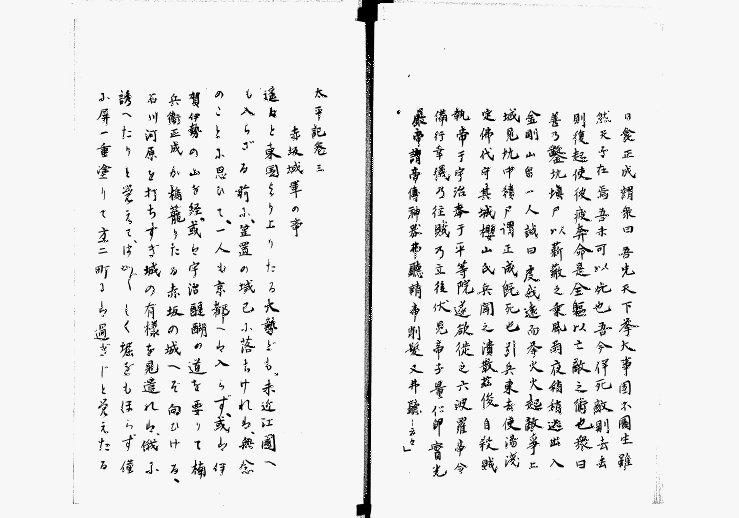 日食正成謂衆曰吾先天下挙大事固不図生雖
然天子在焉吾未可以死也吾今佯死敵則去去
則復起使彼疲奔命是全軀以亡敵之術也衆曰
善乃鑿坑填尸以薪蔽之乗風雨夜稍稍逃出入
金剛山留一人誡曰度我遠而挙火火起敵争上
城見坑中積尸謂正成既死也引兵東去使湯浅
定佛代守其城櫻山氏兵聞之潰散茲俊自殺賊
執帝于宇治奉于平等院遂欲徙之六波羅帝令
備行幸儀乃往賊乃立後伏見帝子量仁即實光
嚴帝請帝傳神器弗聴請帝削髪又弗聴云々」
太平記巻三
赤坂城軍の事
遥々と東国より上りたる大勢ども、未近江国へ
も入らざる前に、笠置の城已に落ちければ、無念
のことに思ひて、一人も京都へは入らず、或は伊
賀伊勢の山を経、或は宇治醍醐の道を要りて楠
兵衛正成が楯籠りたる赤坂の城へぞ向ひける、
石川河原を打ちすぎ城の有様を見遣れば、俄に
誘へたりと覚えてはか〲しく堀をもほらず僅
に屏一重塗りて方一二町には過ぎじと覚えたる